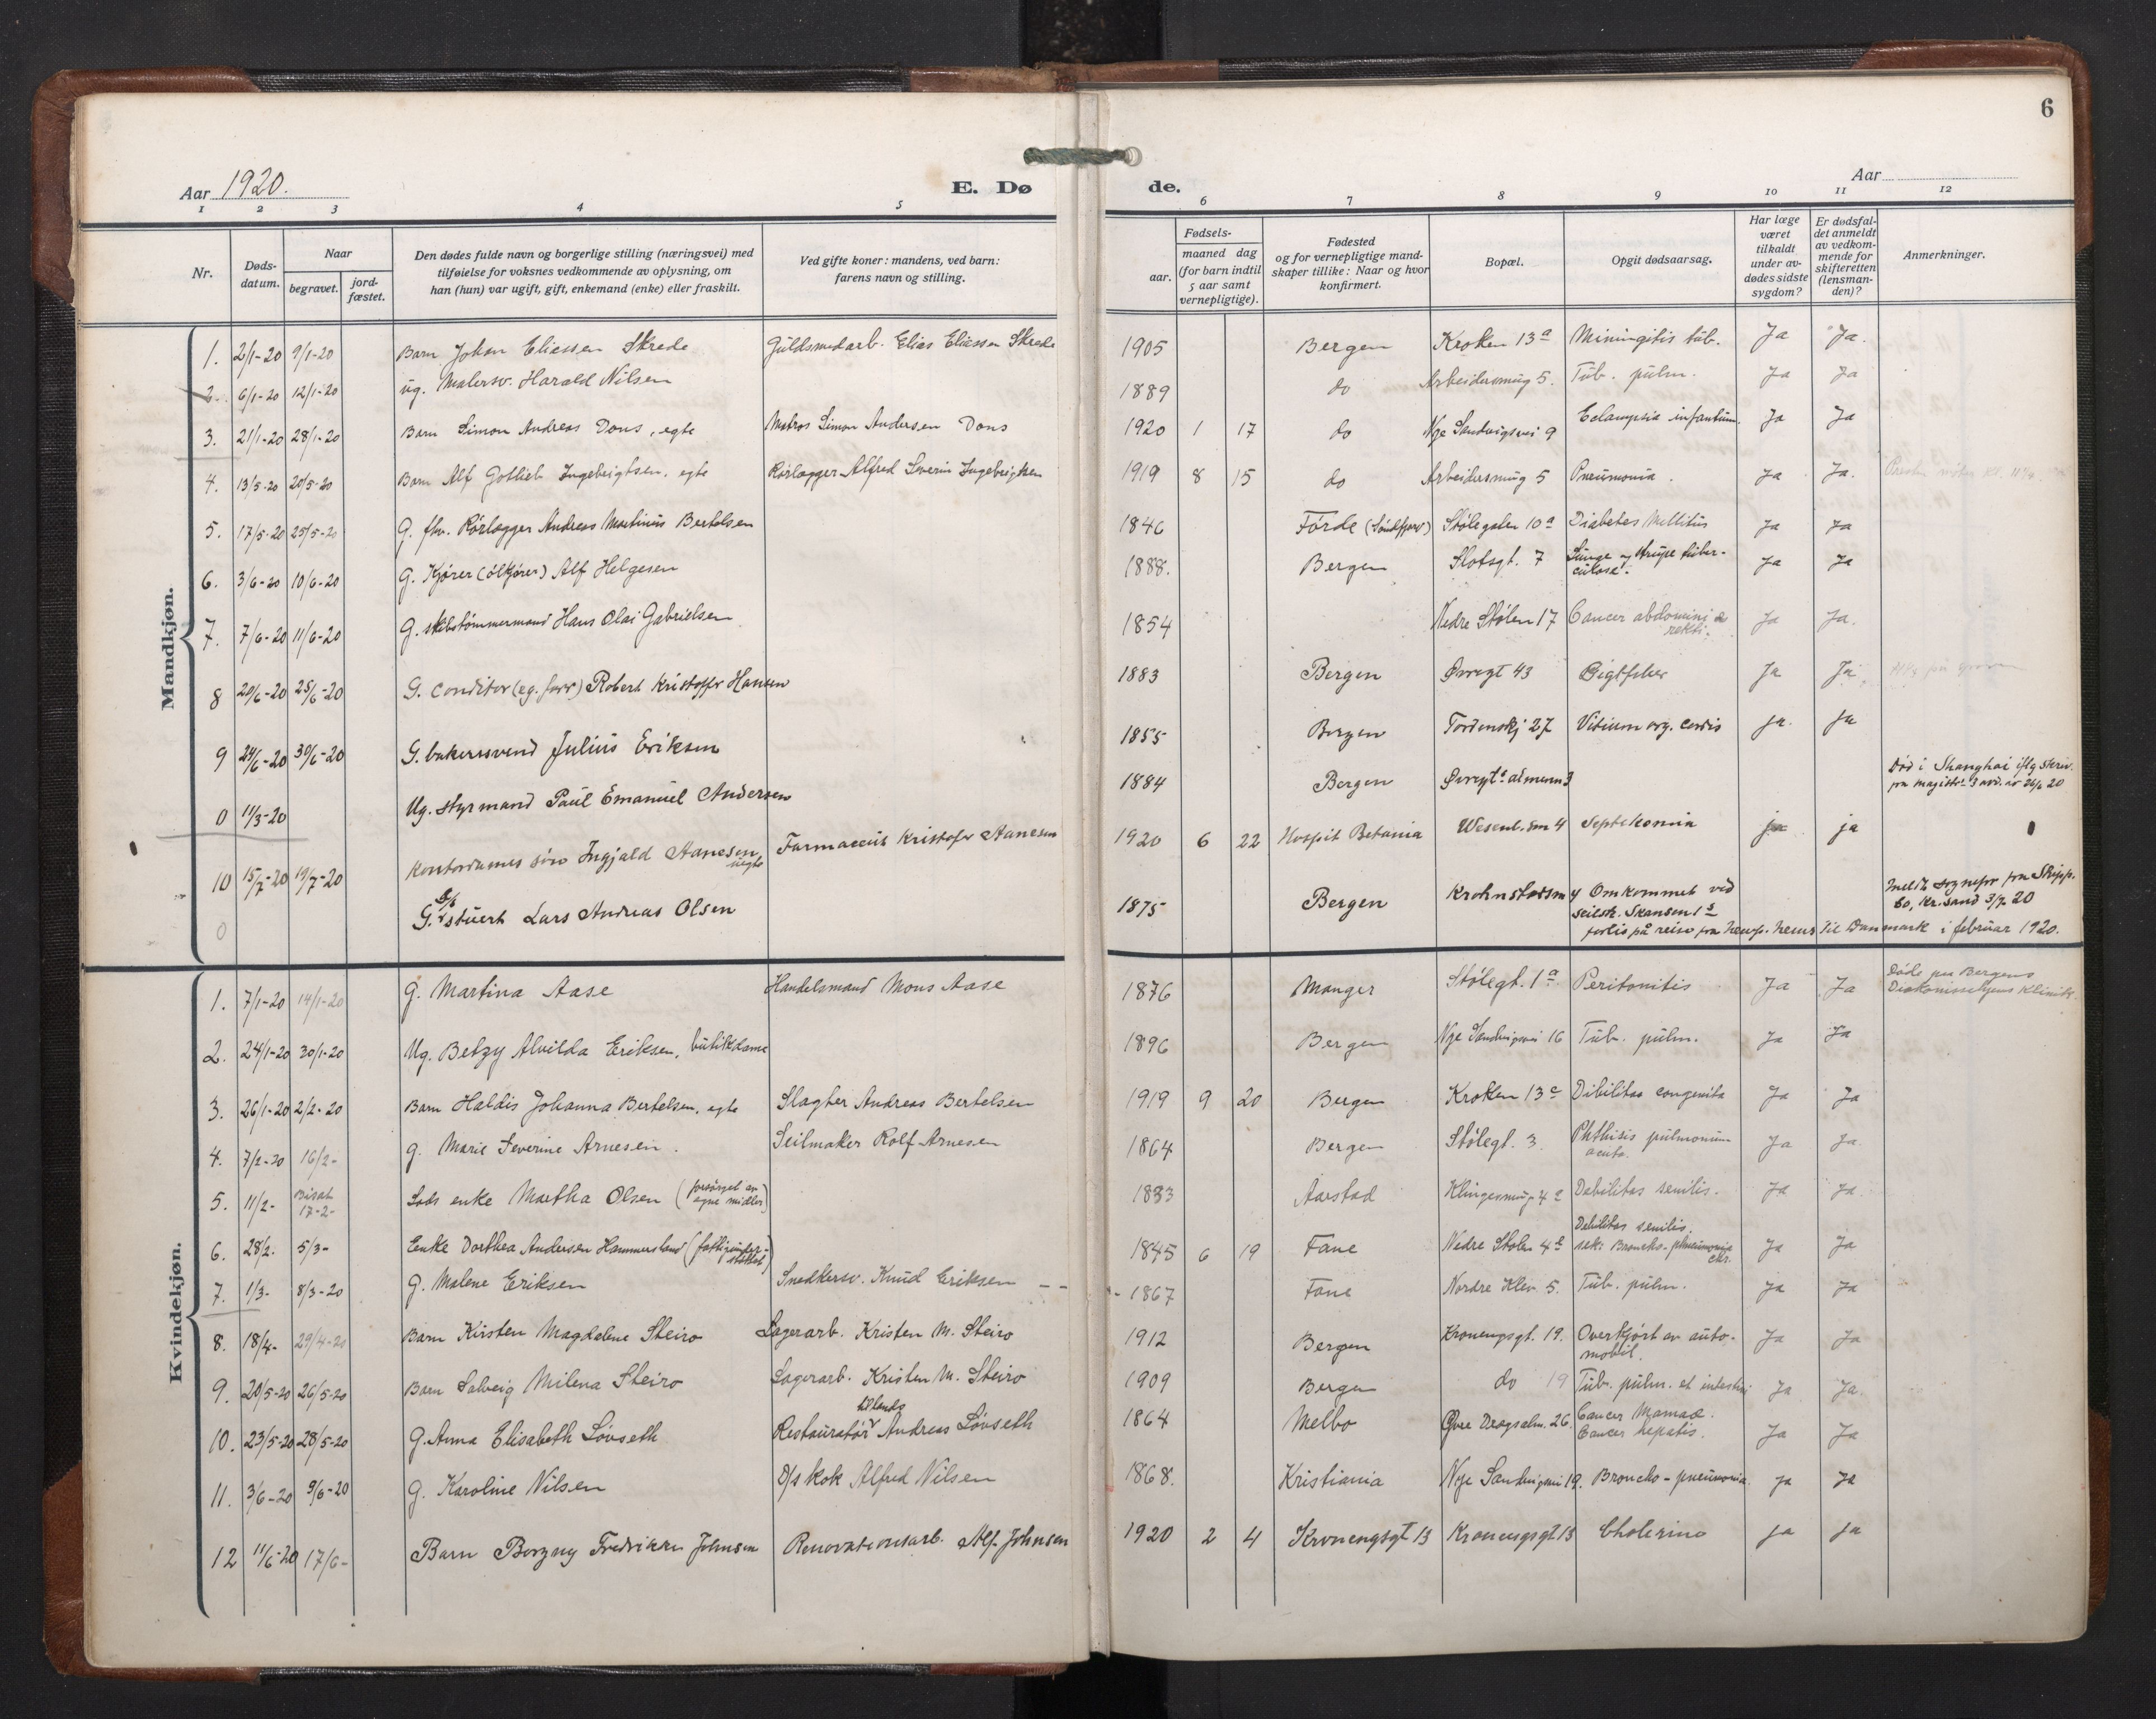 6
Aar 1920.
E. Dø
de.
Aar
1 2 3 4 5 6 7 8 9 10 11 12
Nr.
Døds-
datum.
Naar
begravet.
jord-
fæstet.
Den dødes fulde navn og borgerlige stilling (næringsvei) med
tilføielse for voksnes vedkommende av oplysning, om
han (hun) var ugift, gift, enkemand (enke) eller fraskilt.
Ved gifte koner: mandens, ved barn:
farens navn og stilling.
Fødsels-
aar.
maaned dag
(for barn indtil
5 aar samt
vernepligtige).
Fødested
og for vernepligtige mand-
skaper tillike: Naar og hvor
konfirmert.
Bopæl.
Opgit dødsaarsag.
Har læge
været
tilkaldt
under av-
dødes sidste
sygdom?
Er dødsfal-
det anmeldt
av vedkom-
mende for
skifteretten
(lensman-
den)?
Anmerkninger.
Mandkjøn.
1. 2/1-20 9/1-20 Barn Johan Eliassen Skrede Guldsmedarb. Elias Eliassen Skrede 1905 Bergen Kroken 13a Miningitis tub. Ja Ja.
2. 6/1-20 12/1-20 ug. Malersv. Harald Nilsen 1889 do Arbeidersmug 5. Tub. pulm. Ja Ja
3. 21/1-20 28/1-20 Barn Simon Andreas Dons, egte Matros Simon Andersen Dons 1920 1 17 do Nye Sandvigsvei 9 Eclampsia infantum. Ja Ja
4. 13/5-20 20/5-20 Barn Alf Gotlieb Ingebrigtsen, egte Rørlægger Alfred Severin Ingebrigtsen 1919 8 15 do Arbeidersmug 5 Pneumonia. Ja Ja.
5. 17/5-20 25/5-20 G. fhv. Rørlægger Andreas Martinus Bertelsen 1846 Førde (Søndfjord) Stølegaten 10a Diabetes Mellitus Ja Ja
6. 3/6-20 10/6-20 G. Kjører (ølkjører) Alf Helgesen 1888. Bergen Slotsgt. 7 Lunge og strupe tuber-
culose. Ja Ja
7. 7/6-20 11/6-20 G. skibstømmermand Hans Olai Gabrielsen 1854 Nedre Stølen 17 Cancer abdomini &
rekti. Ja Ja.
8 20/6-20 25/6-20 G. Conditor (eg. forr) Robert Kristoffer Hansen 1883 Bergen Øvregt 43 Gigtfeber Ja Ja,
9 24/6-20 30/6-20 G. bakersvend Julius Eriksen 1855 Bergen Tordenskj 27 Vitium org. cordis ja ja
0 11/3-20 Ug. styrmand Paul Emanuel Andersen 1884 Bergen Øvregts almenn 3 Død i Shanghai iflg skriv.
fra magistr. 3 avd. av 26/6 20
10 15/7-20 19/7-20 kontordames søn Ingjald Aanesen, uegte Farmaceut Kristofer Aanesen 1920 6 22 Hospit Betania Wesenb. sm 4 Septekemia ja ja
0 G. D/s stuert Lars Andreas Olsen 1875 Bergen Krohnstadsm 4 Omkommet ved
seilsk. Skansen 1s
forlis på reise fra Newp. News til Danmark i februar 1920.
Meldt sognepr fra Skipp.
co, Kr.sand 3/7 20
Kvindekjøn.
1. 7/1-20 14/1-20 g. Martina Aase Handelsmand Mons Aase 1876 Manger Stølegt. 1a. Peritonitis Ja Ja Døde paa Bergens
Diakonissehjems klinik.
2. 24/1-20 30/1-20 Ug. Betzy Alvilda Eriksen, butikdame 1896 Bergen Nye Sandvigsvei 16 Tub. pulm. Ja Ja
3. 26/1-20 2/2-20 Barn Haldis Johanna Bertelsen, egte Slagter Andreas Bertelsen 1919 9 20 Bergen Kroken 13c Dibilitas congenita Ja Ja
4. 7/2-20 16/2- g. Marie Severine Arnesen. Seilmaker Rolf Arnesen 1864 Bergen Stølegt. 3 Phthisis pulmonum
acuta. Ja Ja.
5. 11/2- Bisat
17-2- Lods enke Martha Olsen (forsørget av
egne midler) 1833 Aarstad Klingesmug 4 Debilitas senilis. Ja Ja
6. 28/2. 5/3- Enke Dorthea Andersen Hammersland (fattigunder-
støttet) 1845 6 19 Fane Nedre Stølen 4 Debilitas senilis.
sek: Broncho-pneumonia
chr. Ja Ja
7. 1/3- 8/3-20 g. Malene Eriksen Snedkersv. Knud Eriksen - - - 1867 Fane Nordre Klev. 5. Tub. pulm. Ja Ja
8. 18/4- 29/4-20 Barn Kirsten Magdelene Steiro Lagerarb. Kristen M. Steiro 1912 Bergen Kronengsgt. 19. Overkjørt av auto-
mobil. Ja Ja
9. 20/5-20 26/5-20 Barn Solveig Milena Steiro Lagerarb. Kristen M. Steiro 1909 Bergen do 19 Tub. pulm. et intestini Ja Ja.
10. 23/5-20 28/5-20 G. Anna Elisabeth Løvseth Restauratør Andreas Løvseth 1864 Melbo Øvre Dragsalm. 26. Cancer Mamae.
Cancer hepatis. Ja Ja
11. 3/6-20 9/6-20 g. Karoline Nilsen D/s kok Alfred Nilsen 1868. Kristiania Nye Sandvigsvei 19. Broncho-pneumonia. Ja Ja
12 11/6-20 17/6- Barn Borgny Fredrikke Johnsen Renovationsarb. Alf Johnsen 1920 2 4 Kronengsgt 13 Kronengsgt 13 Cholerine ja ja